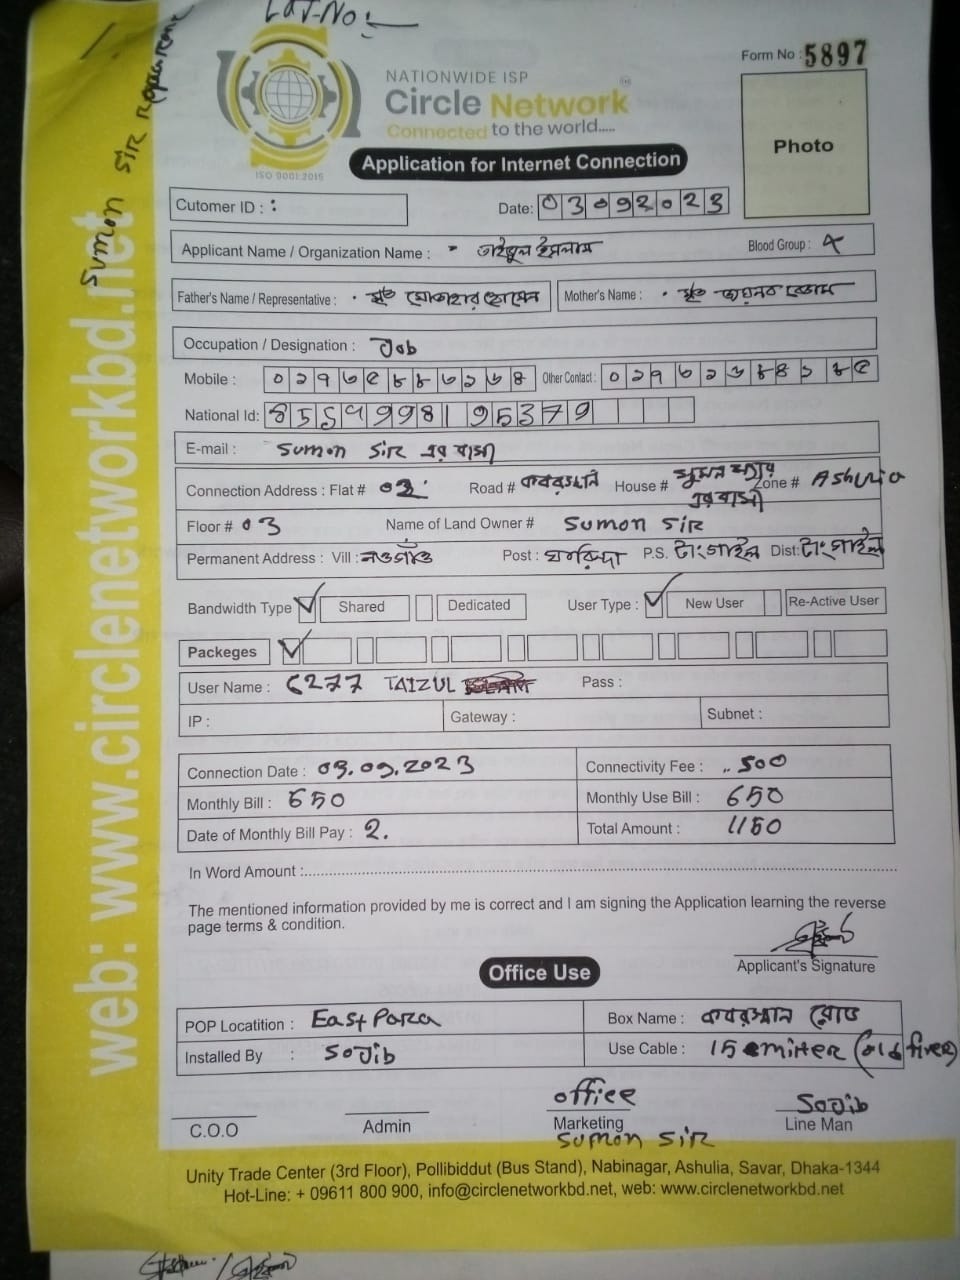 Lat-No:
Sumon Sir
NATIONWIDE ISP
Circle Network
Connected to the world.....
ISO 9001:2015
Form No : 5897
Photo
Application for Internet Connection
Cutomer ID : :
Date: 03092023
Applicant Name / Organization Name : তাইজুল ইসলাম Blood Group : A
Father's Name / Representative : মৃত মোতাহার হোসেন Mother's Name : মৃত জয়নব বেগম
Occupation / Designation : Job
Mobile : Other Contact :
National Id: 
E-mail : Sumon Sir এর বাসা
Connection Address : Flat # 02 Road # কবরস্থান House # সুমন স্যার এর বাসা Zone # Ashulia
Floor # 03 Name of Land Owner # Sumon Sir
Permanent Address : Vill : নওগাঁও Post : ঘারিন্দা P.S. টাংগাইল Dist: টাংগাইল
Bandwidth Type Shared Dedicated User Type : New User Re-Active User
Packeges
User Name : 6277 TAIZUL Pass :
IP : Gateway : Subnet :
Connection Date : 03.09.2023 Connectivity Fee : 500
Monthly Bill : 650 Monthly Use Bill : 650
Date of Monthly Bill Pay : 2. Total Amount : 1150
In Word Amount :
The mentioned information provided by me is correct and I am signing the Application learning the reverse
page terms & condition.
Applicant's Signature
Office Use
POP Locatition : East Para Box Name : কবরস্থান রোড
Installed By : Sojib Use Cable : 15 mitter (old fiver)
office Sojib
C.O.O Admin Marketing Line Man
Sumon Sir
Unity Trade Center (3rd Floor), Pollibiddut (Bus Stand), Nabinagar, Ashulia, Savar, Dhaka-1344
Hot-Line: + 09611 800 900, info@circlenetworkbd.net, web: www.circlenetworkbd.net
web: www.circlenetworkbd.net